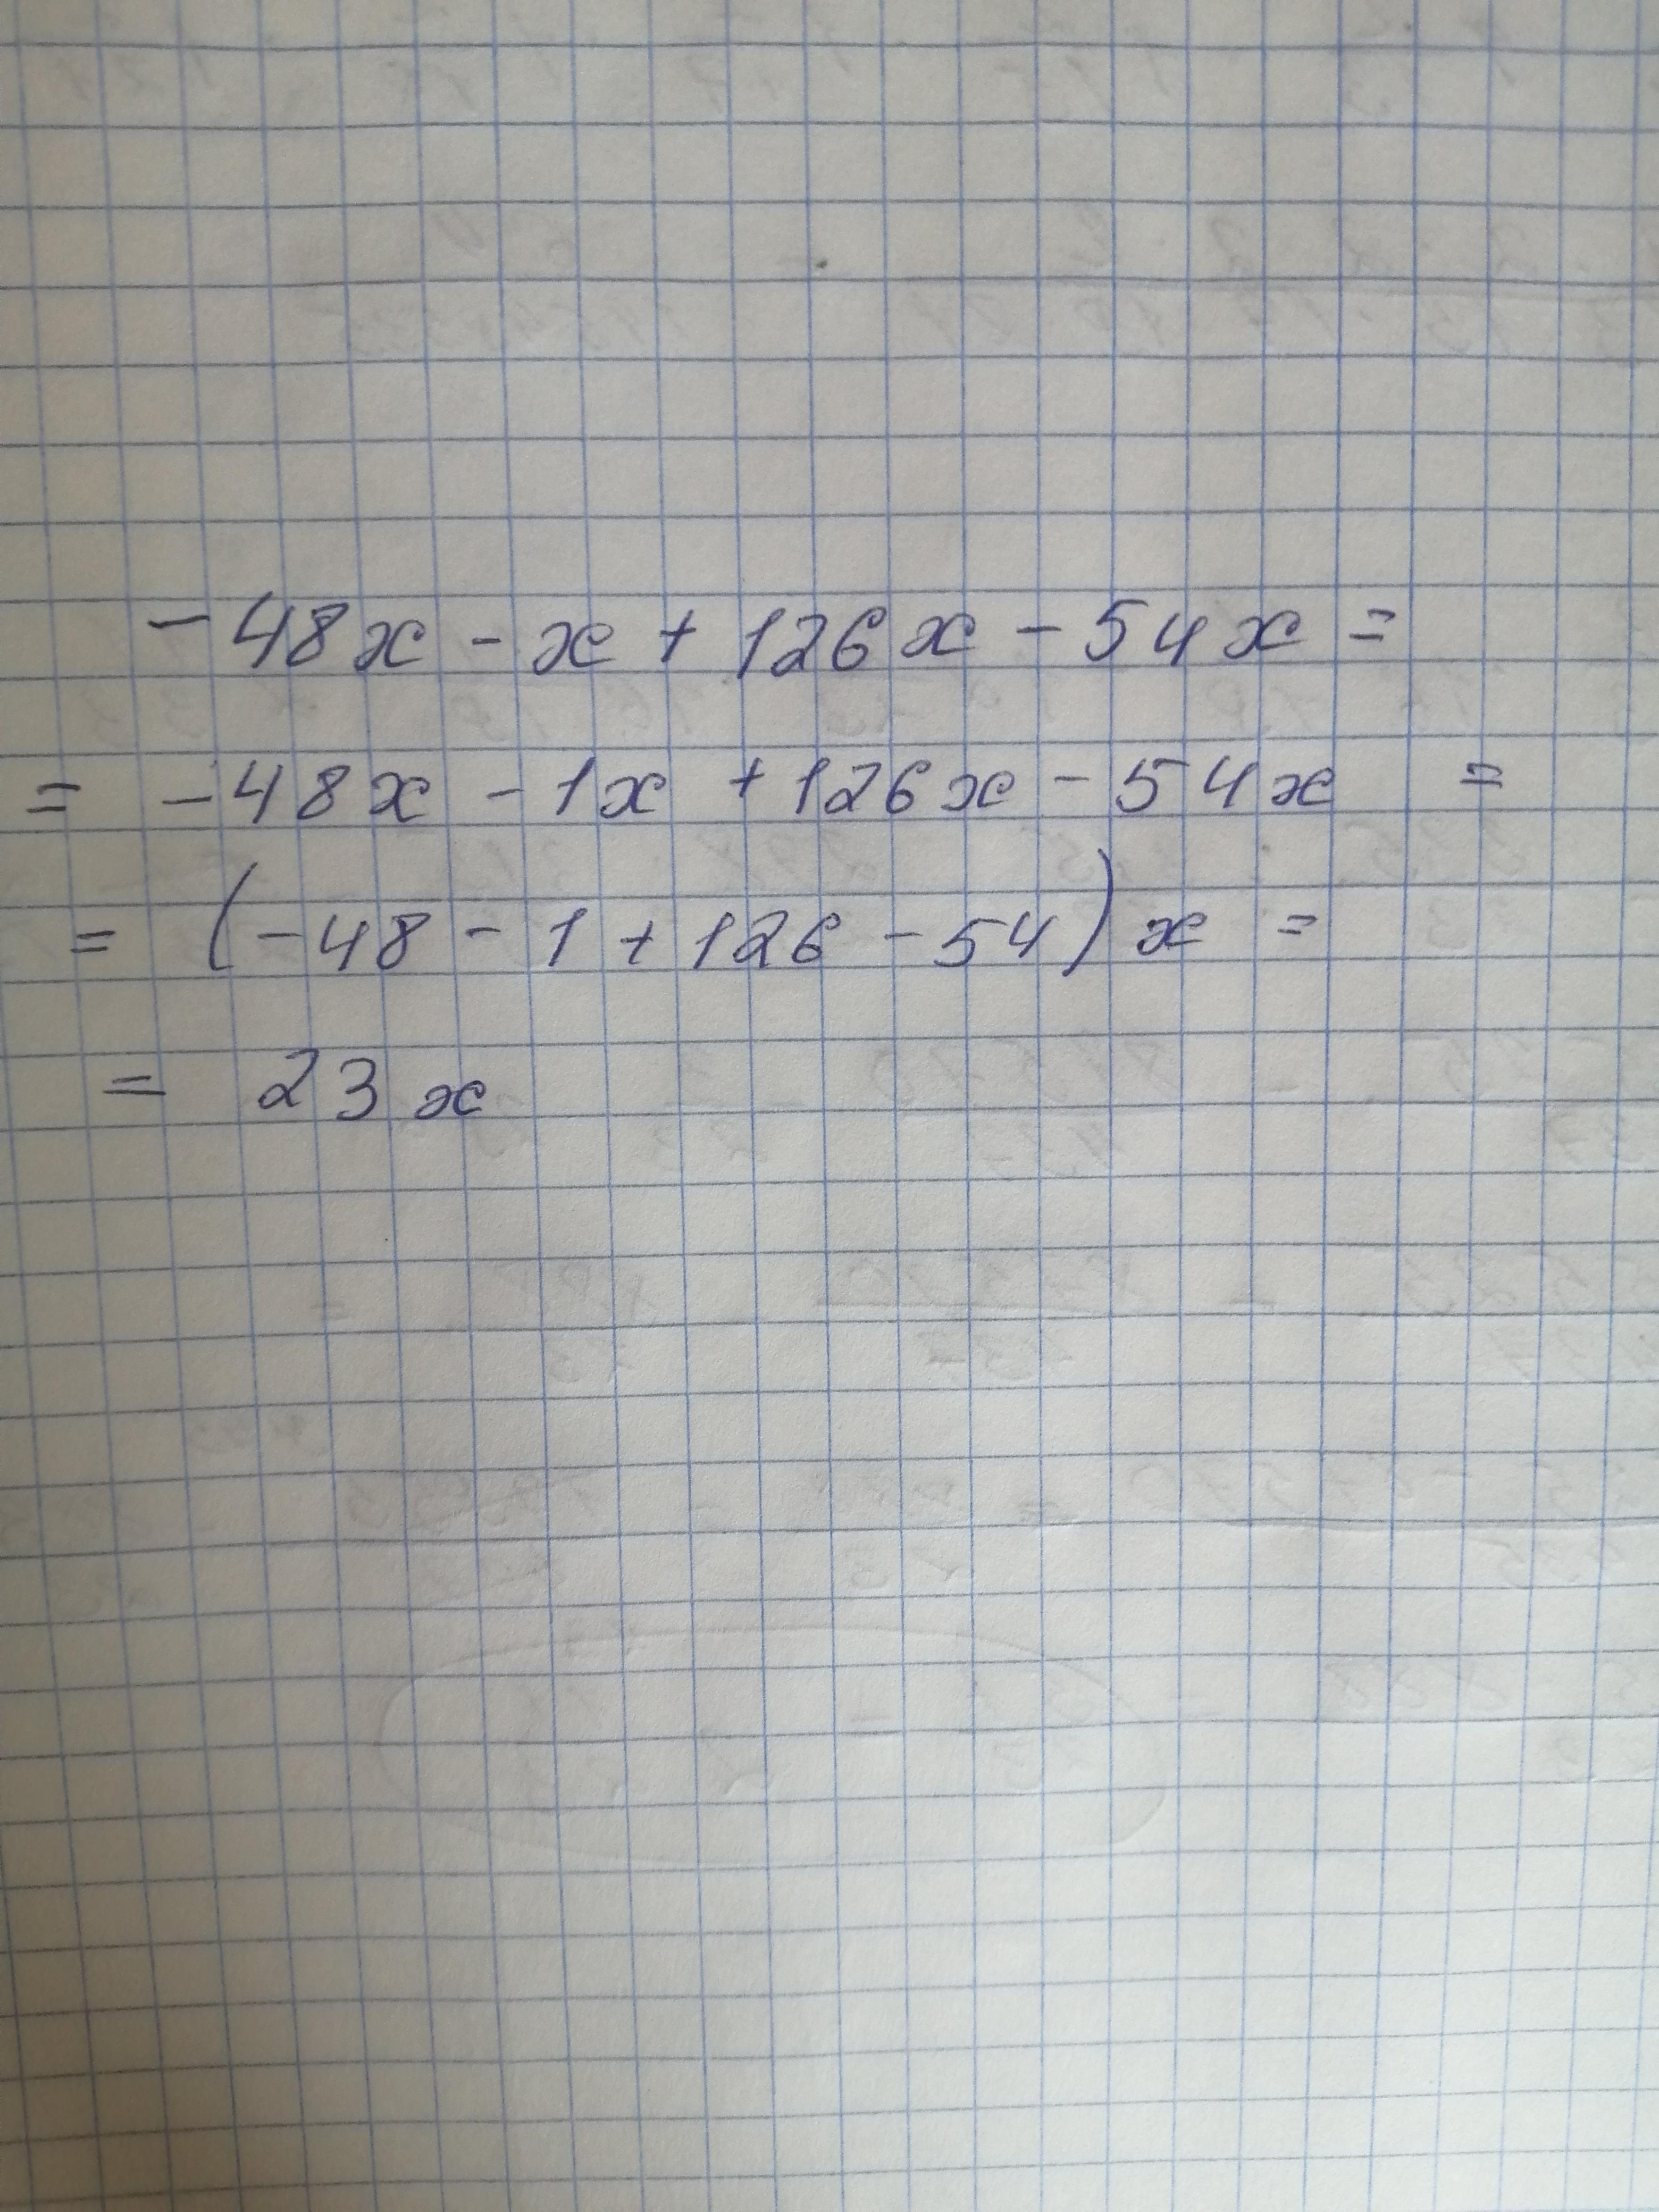 - 48x - x + 126x - 54x =
= - 48x - 1x + 126x - 54x =
= (- 48 - 1 + 126 - 54) x =
= 23x